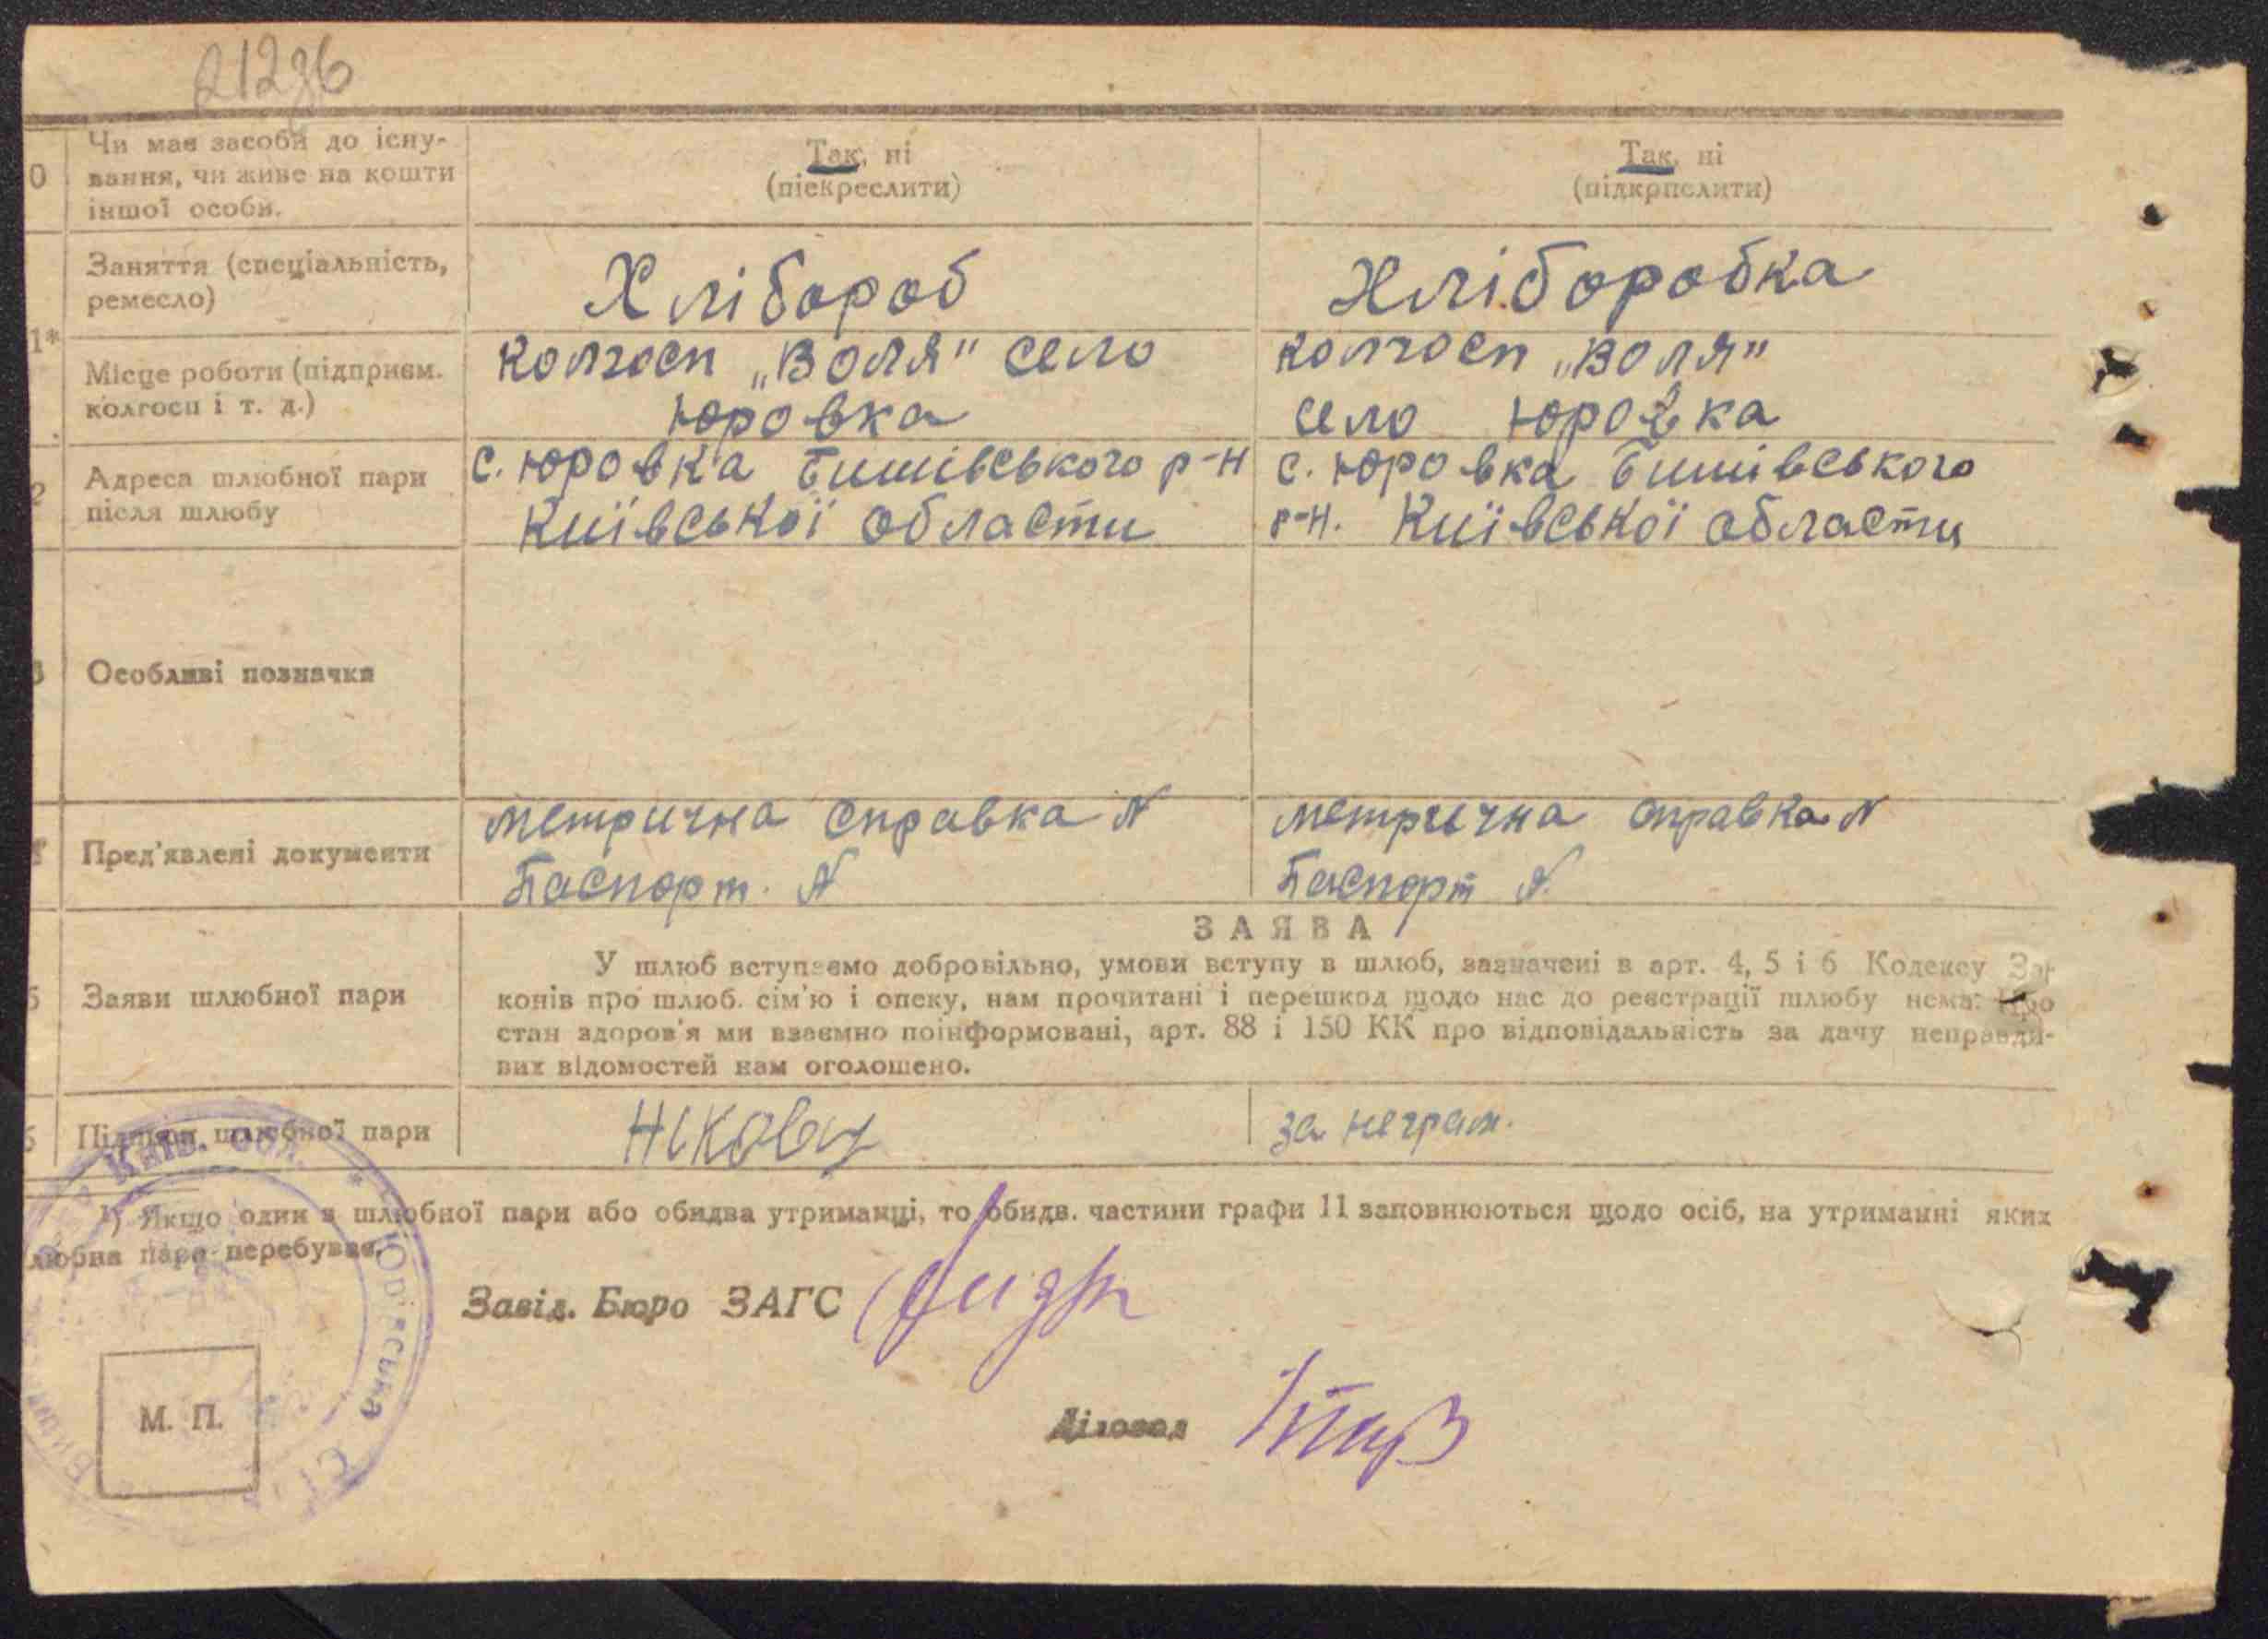 212зв
0 Чи має засоби до існу-
вання, чи живе на кошти
іншої особи.
Так, ні
(піскреслити)
Так, ні
(підкрпслити)
1*
Заняття (спеціальність,
ремесло)
Хлібороб
Хліборобка
Місце роботи (підприєм.
колгосп і т. д.)
колгосп „Воля" село
Юровка
колгосп „Воля"
село Юровка
2 Адреса шлюбної пари
після шлюбу
с. Юровка Бишівського р-н
Київської области
с. Юровка Бишівського
р-н. Київської области
3 Особливі позначки
Пред'явлені документи
метрична справка N
Паспорт. N
метрична справка N
Паспорт N.
5 Заяви шлюбної пари
ЗАЯВА
У шлюб вступаємо добровільно, умови вступу в шлюб, зазначені в арт. 4, 5 і 6 Кодексу За-
конів про шлюб. сім'ю і опеку, нам прочитані і перешкод щодо нас до реєстрації шлюбу нема. Про
стан здоров'я ми взаємно поінформовані, арт. 88 і 150 КК про відповідальність за дачу неправди-
вих відомостей нам оголошено.
6 Підписи шлюбної пари
за неграм.
¹) Якщо один з шлюбної пари або обидва утриманці, то обидв. частини графи 11 заповнюються щодо осіб, на утриманні яких
любна пара перебуває.
Завід. Бюро ЗАГС
Діловод
М. П.
Київ. обл. * Юрівська